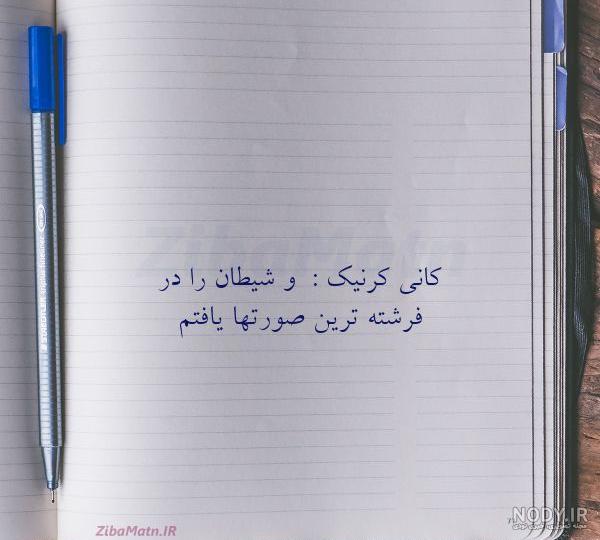 ZibaMatn
کانی کرنیک : و شیطان را در
فرشته ترین صورتها یافتم
ZibaMatn.IR
NODY.IR